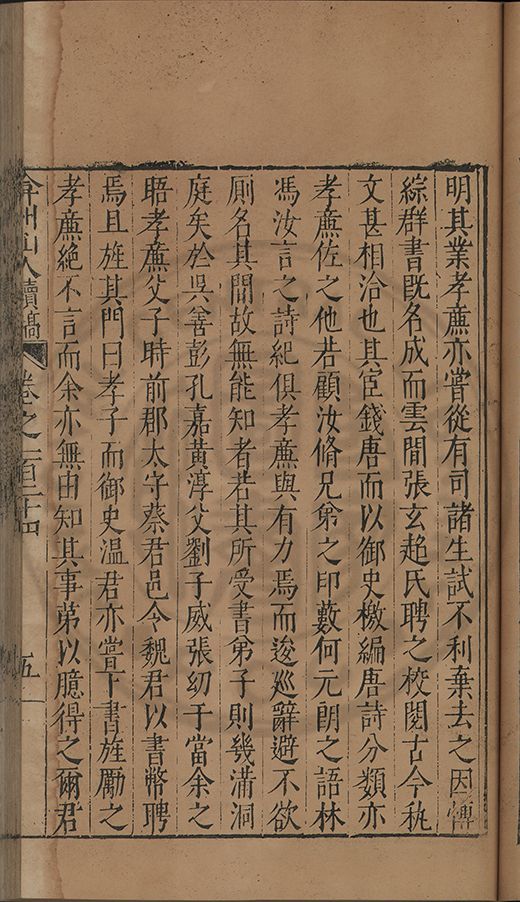 明其業孝廉亦嘗從有司諸生試不利棄去之因博
綜群書既名成而雲間張玄超氏聘之校閱古今秇
文甚相洽也其宦錢唐而以御史檄編唐詩分類亦
孝廉佐之他若顧汝脩兄弟之印藪何元朗之語林
馮汝言之詩紀俱孝廉與有力焉而逡巡辭避不欲
厠名其間故無能知者若其所受書弟子則幾滿洞
庭矣於吳善彭孔嘉黃淳父劉子威張幼于當余之
晤孝廉父子時前郡太守蔡君邑令魏君以書幣聘
焉且旌其門曰孝子而御史溫君亦嘗下書旌勵之
孝廉絕不言而余亦無由知其事弟以臆得之爾君
弇州山人續稿 卷之一百二十四 五